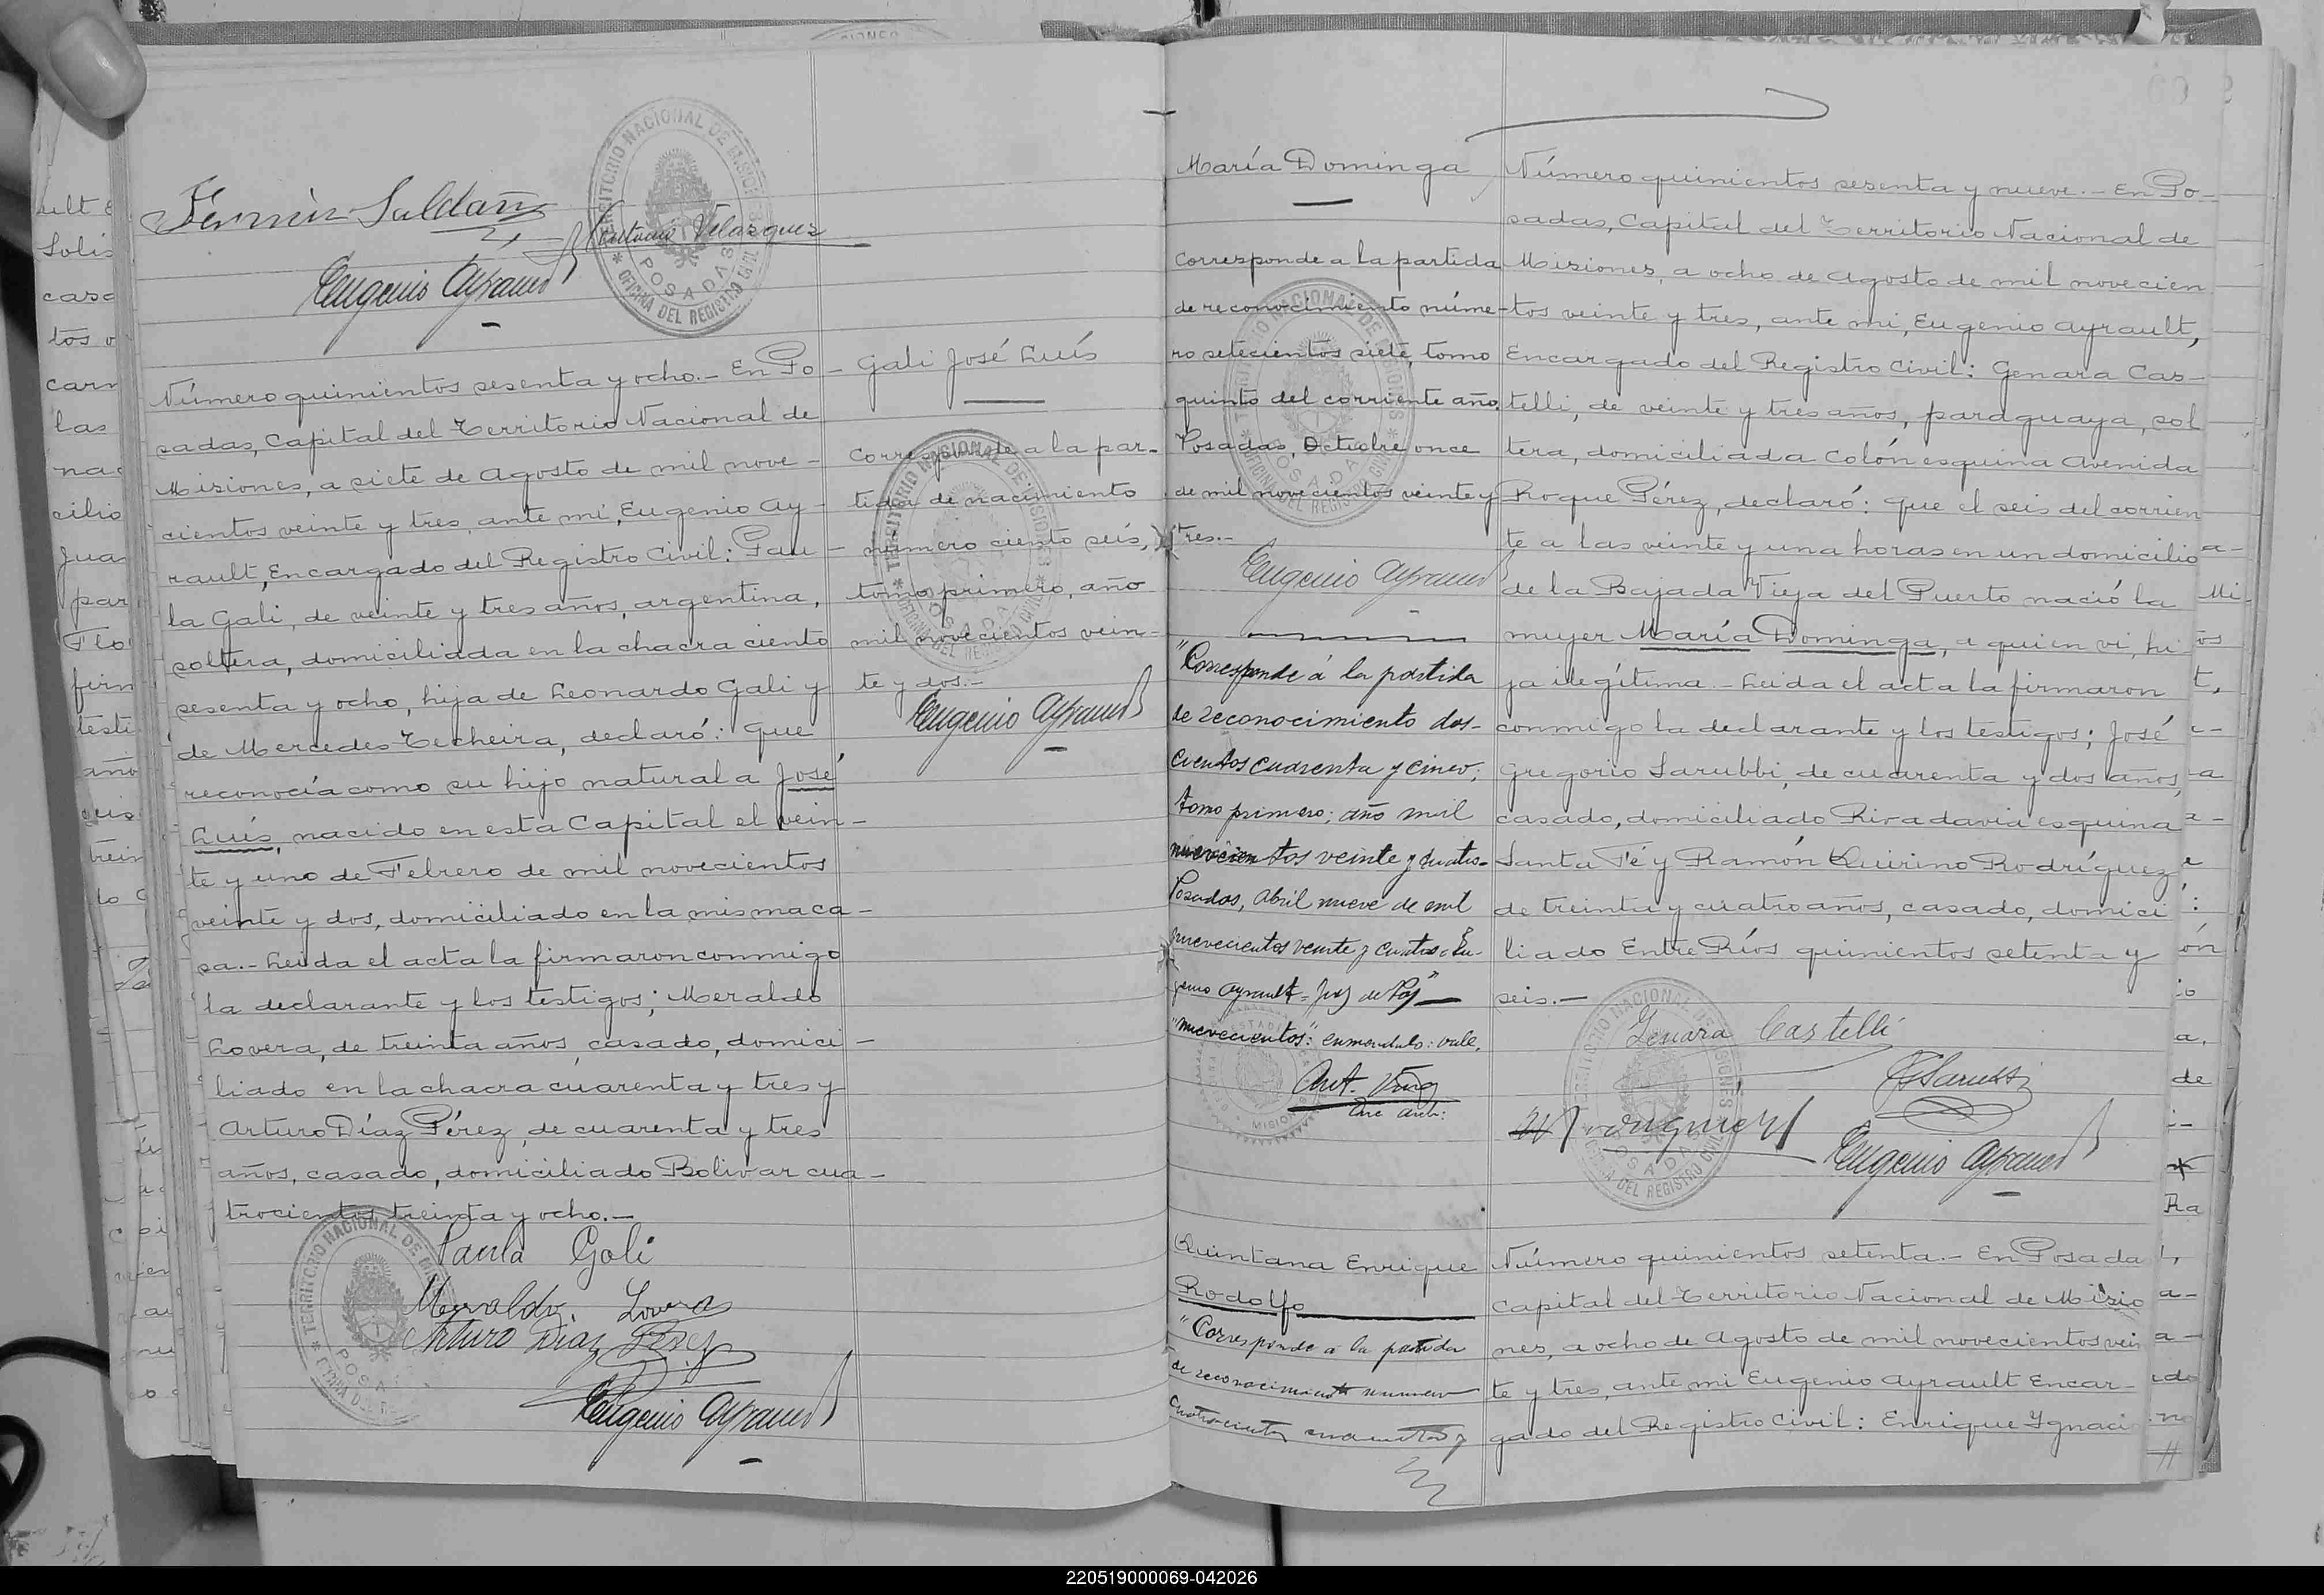 Fermín Saldaña
Antonio Velazquez
Eugenio Ayrault
TERRITORIO NACIONAL DE MISIONES
POSADAS
OFICINA DEL REGISTRO CIVIL
Número quinientos sesenta y ocho.- En Po-
sadas, Capital del Territorio Nacional de
Misiones, a siete de Agosto de mil nove-
cientos veinte y tres, ante mi, Eugenio Ay-
rault, Encargado del Registro Civil: Pau-
la Gali, de veinte y tres años, argentina,
soltera, domiciliada en la chacra ciento
sesenta y ocho, hija de Leonardo Gali y
de Mercedes Techeira, declaró: que
reconocía como su hijo natural a José
Luís, nacido en esta Capital el vein-
te y uno de Febrero de mil novecientos
veinte y dos, domiciliado en la misma ca-
sa.- Leida el acta la firmaron conmigo
la declarante y los testigos; Meraldo
Lovera, de treinta años, casado, domici-
liado en la chacra cuarenta y tres y
Arturo Díaz Pérez, de cuarenta y tres
años, casado, domiciliado Bolivar cua-
trocientos treinta y ocho.-
Paula Gali
Meraldo Lovera
Arturo Díaz Pérez
Eugenio Ayrault
Gali José Luís
Corresponde a la par-
tida de nacimiento
número ciento seis,
tomo primero, año
mil novecientos vein-
te y dos.-
Eugenio Ayrault
María Dominga
Corresponde a la partida
de reconocimiento núme-
ro setecientos siete, tomo
quinto del corriente año.
Posadas, Octubre once
de mil novecientos veinte y
tres.-
Eugenio Ayrault
"Corresponde á la partida
de reconocimiento dos-
cientos cuarenta y cinco;
tomo primero; año mil
novecientos veinte y cuatro-
Posadas, Abril nueve de mil
novecientos veinte y cuatro: Eu-
genio Ayrault = Juez de Paz"
"novecientos": enmendado: vale.
Número quinientos sesenta y nueve.- En Po-
sadas, Capital del Territorio Nacional de
Misiones, a ocho de Agosto de mil novecien
tos veinte y tres, ante mi, Eugenio Ayrault,
Encargado del Registro Civil: Genara Cas-
telli, de veinte y tres años, paraguaya, sol
tera, domiciliada Colón esquina Avenida
Roque Pérez, declaró: que el seis del corrien
te a las veinte y una horas en un domicilio
de la Bajada Vieja del Puerto nació la
mujer María Dominga, a quien vi, hi
ja ilegítima.- Leida el acta la firmaron
conmigo la declarante y los testigos; José
Gregorio Sarubbi, de cuarenta y dos años,
casado, domiciliado Rivadavia esquina
Santa Fé y Ramón Quirino Rodríguez
de treinta y cuatro años, casado, domici
liado Entre Ríos quinientos setenta y
seis.-
Genara Castelli
Eugenio Ayrault
Quintana Enrique
Rodolfo
"Corresponde á la partida
de reconocimiento numero
cuatrocientos cuarenta y
Número quinientos setenta.- En Posada
Capital del Territorio Nacional de Misio
nes, a ocho de Agosto de mil novecientos vein
te y tres, ante mi Eugenio Ayrault Encar-
gado del Registro Civil: Enrique Ygnaci
220519000069-042026